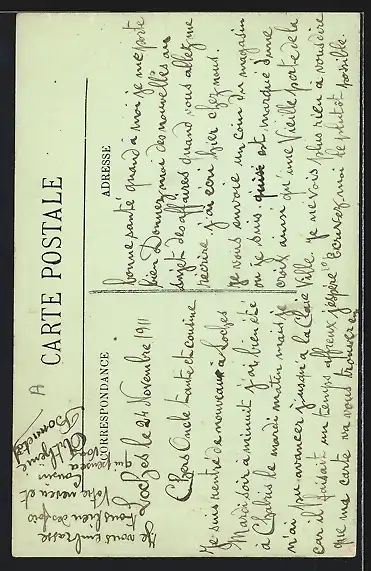 CARTE POSTALE
CORRESPONDANCE
ADRESSE
Loches le 24 Novembre 1911
Chers Oncle tante et cousine
Je suis rentré de nouveaux à Loches
Mardi soir à minuit j'ai bien été
à Chabris le mardi matin mais je
n'ai pu avancer jusqu'a la
car il faisait un temps affreux j'espère
que ma carte va vous trouver en
bonne santé quand à moi je me porte
bien Donnez moi des nouvelles au
sujet des affaires quand vous allez me
recrire j'ai ecri hier chez nous.
Je vous envoie un coin du magasin
ou je suis qui est marqué d'une
croix ainsi qu'une Vieille porte de la
Ville. Je ne vois plus rien à vous dire
Ecrivez moi le plutôt possible.
Je vous embrasse
tous bien des fois
Votre neveu et
cousin
qui pense a
vous